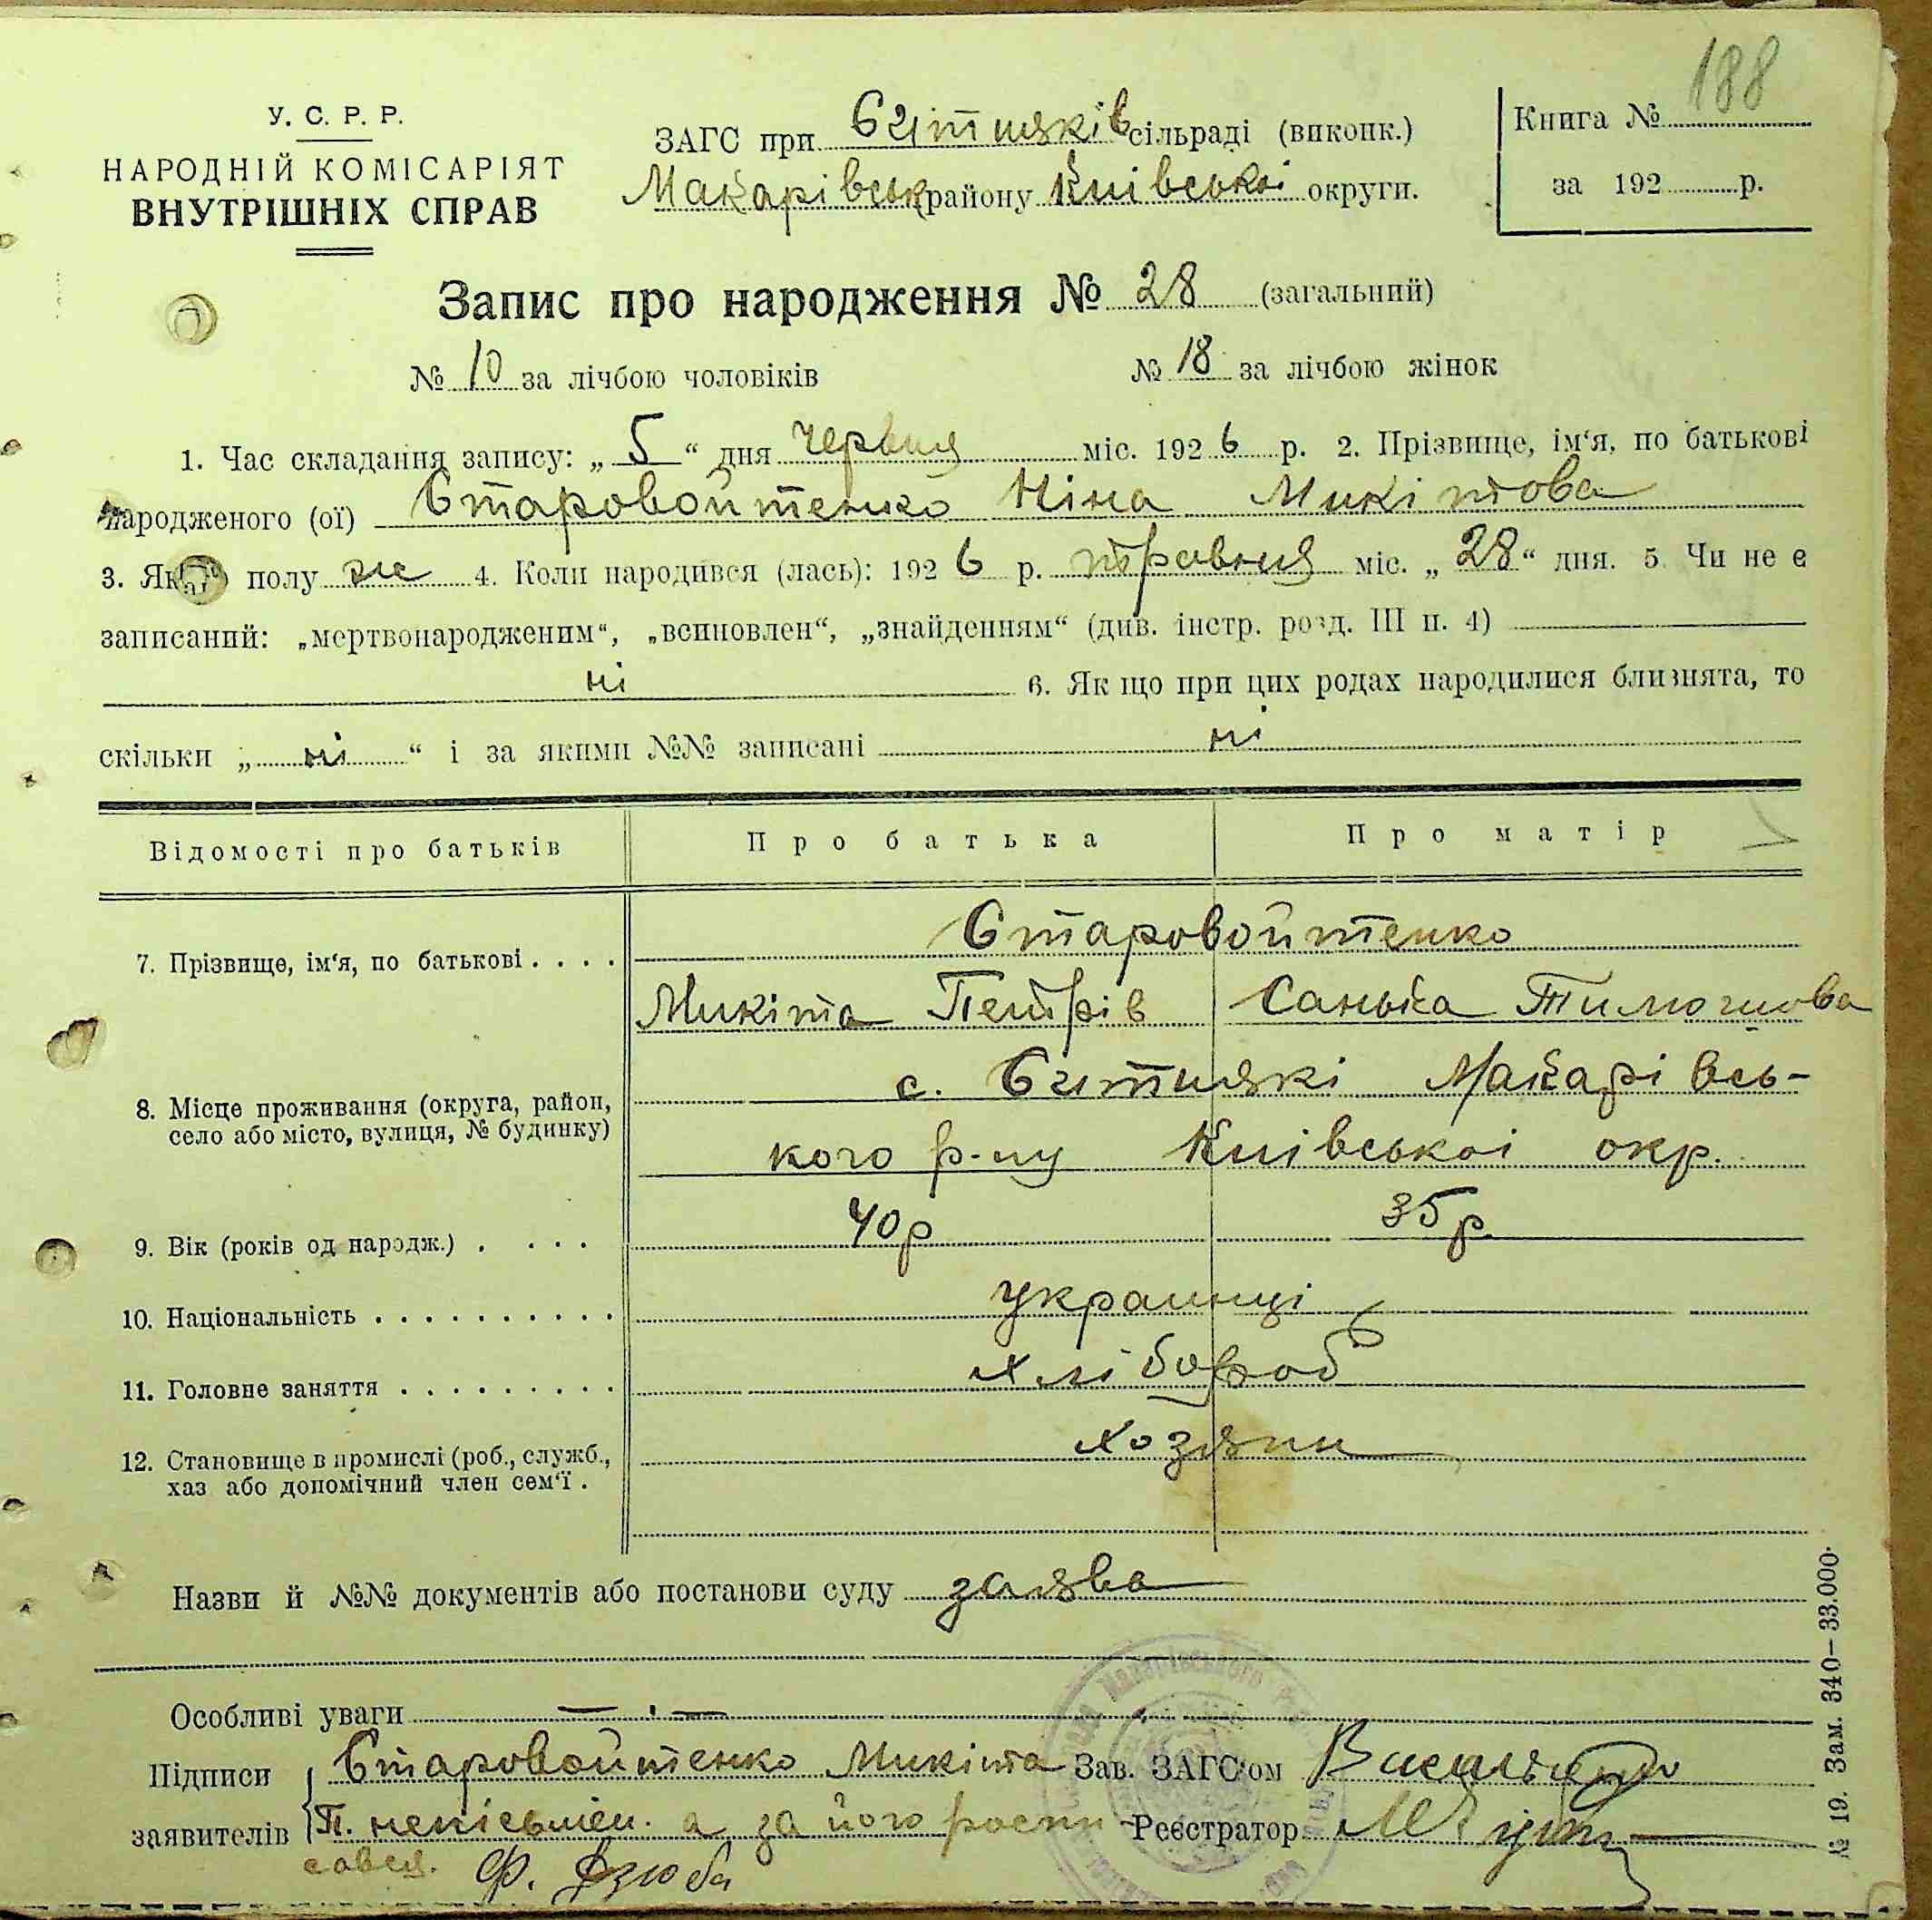 188
У. С. Р. Р.
НАРОДНІЙ КОМІСАРІЯТ
ВНУТРІШНІХ СПРАВ
ЗАГС при Ситнякiв сільраді (виконк.)
Макарівськ району Київськоі округи.
Книга №
за 192 р.
Запис про народження № 28 (загальний)
№ 10 за лічбою чоловіків № 18 за лічбою жінок
1. Час складання запису: „ 5 “ дня червня міс. 192 6 р. 2. Прізвище, ім‘я, по батькові
народженого (ої) Старовойтенко Ніна Микітова
3. Як полу жі 4. Коли народився (лась): 192 6 р. травня міс. „ 28 “ дня. 5 Чи не є
записаний: „мертвонародженим“, „всиновлен“, „знайденням“ (див. інстр. розд. III п. 4)
ні 6. Як що при цих родах народилися близнята, то
скільки „ ні “ і за якими №№ записані ні
Відомості про батьків Про батька Про матір
7. Прізвище, ім‘я, по батькові . . . . Старовойтенко
Микіта Петрів Санька Тимошова
8. Місце проживання (округа, район, село або місто, вулиця, № будинку) с. Ситнякі Макарівсь-
кого р-ну Київськоі окр.
9. Вік (років од народж.) . . . . 40р 35р.
10. Національність . . . . . . . . . . украинці
11. Головне заняття . . . . . . . . . хлібороб
12. Становище в промислі (роб., служб., хаз або допомічний член сем‘ї . хозяин
Назви й №№ документів або постанови суду заява
Особливі уваги — . —
Підписи Старовойтенко Микіта Зав. ЗАГС‘ом
заявителів П. неписьмен. а за його роспи- Реєстратор
савея. Ф. Дзюба
№ 19. Зам. 340—33.000.